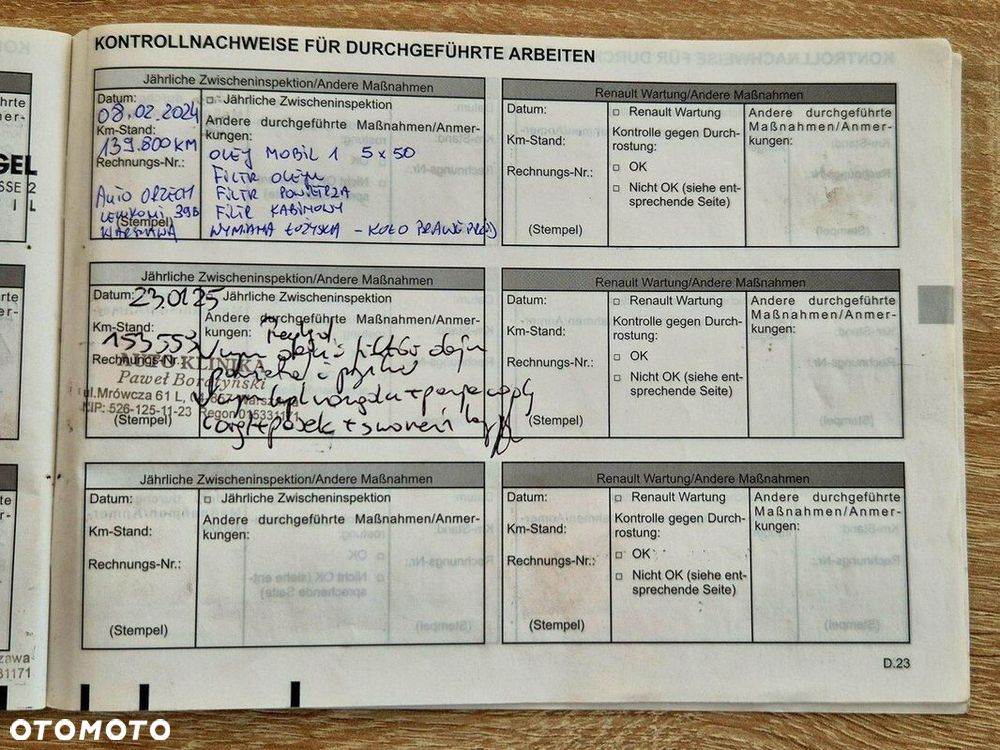 KONTROLLNACHWEISE FÜR DURCHGEFÜHRTE ARBEITEN
Jährliche Zwischeninspektion/Andere Maßnahmen
Datum:
08.02.2024
Km-Stand:
139.800 KM
Rechnungs-Nr.:
AUTO ORZECH
39B
(Stempel)
WARSZAWA
□ Jährliche Zwischeninspektion
Andere durchgeführte Maßnahmen/Anmer-
kungen:
OLEJ MOBIL 1 5x50
FILTR OLEJU
FILTR POWIETRZA
FILTR KABINOWY
WYMIANA ŁOŻYSKA - KOŁO PRAWE PRZÓD
Renault Wartung/Andere Maßnahmen
Datum:
Km-Stand:
Rechnungs-Nr.:
(Stempel)
□ Renault Wartung
Kontrolle gegen Durch-
rostung:
□ OK
□ Nicht OK (siehe ent-
sprechende Seite)
Andere durchgeführte
Maßnahmen/Anmer-
kungen:
Jährliche Zwischeninspektion/Andere Maßnahmen
Datum: 23.01.25
Km-Stand:
153553
Rechnungs-Nr.:
AUTO KLINIKA
Paweł
ul.Mrówcza 61 L,
NIP: 526-125-11-23 Regon
(Stempel)
Jährliche Zwischeninspektion
Andere durchgeführte Maßnahmen/Anmer-
kungen:
oleju i filtrów oleju
Renault Wartung/Andere Maßnahmen
Datum:
Km-Stand:
Rechnungs-Nr.:
(Stempel)
□ Renault Wartung
Kontrolle gegen Durch-
rostung:
□ OK
□ Nicht OK (siehe ent-
sprechende Seite)
Andere durchgeführte
Maßnahmen/Anmer-
kungen:
Jährliche Zwischeninspektion/Andere Maßnahmen
Datum:
Km-Stand:
Rechnungs-Nr.:
(Stempel)
□ Jährliche Zwischeninspektion
Andere durchgeführte Maßnahmen/Anmer-
kungen:
Renault Wartung/Andere Maßnahmen
Datum:
Km-Stand:
Rechnungs-Nr.:
(Stempel)
□ Renault Wartung
Kontrolle gegen Durch-
rostung:
□ OK
□ Nicht OK (siehe ent-
sprechende Seite)
Andere durchgeführte
Maßnahmen/Anmer-
kungen:
D.23
OTOMOTO